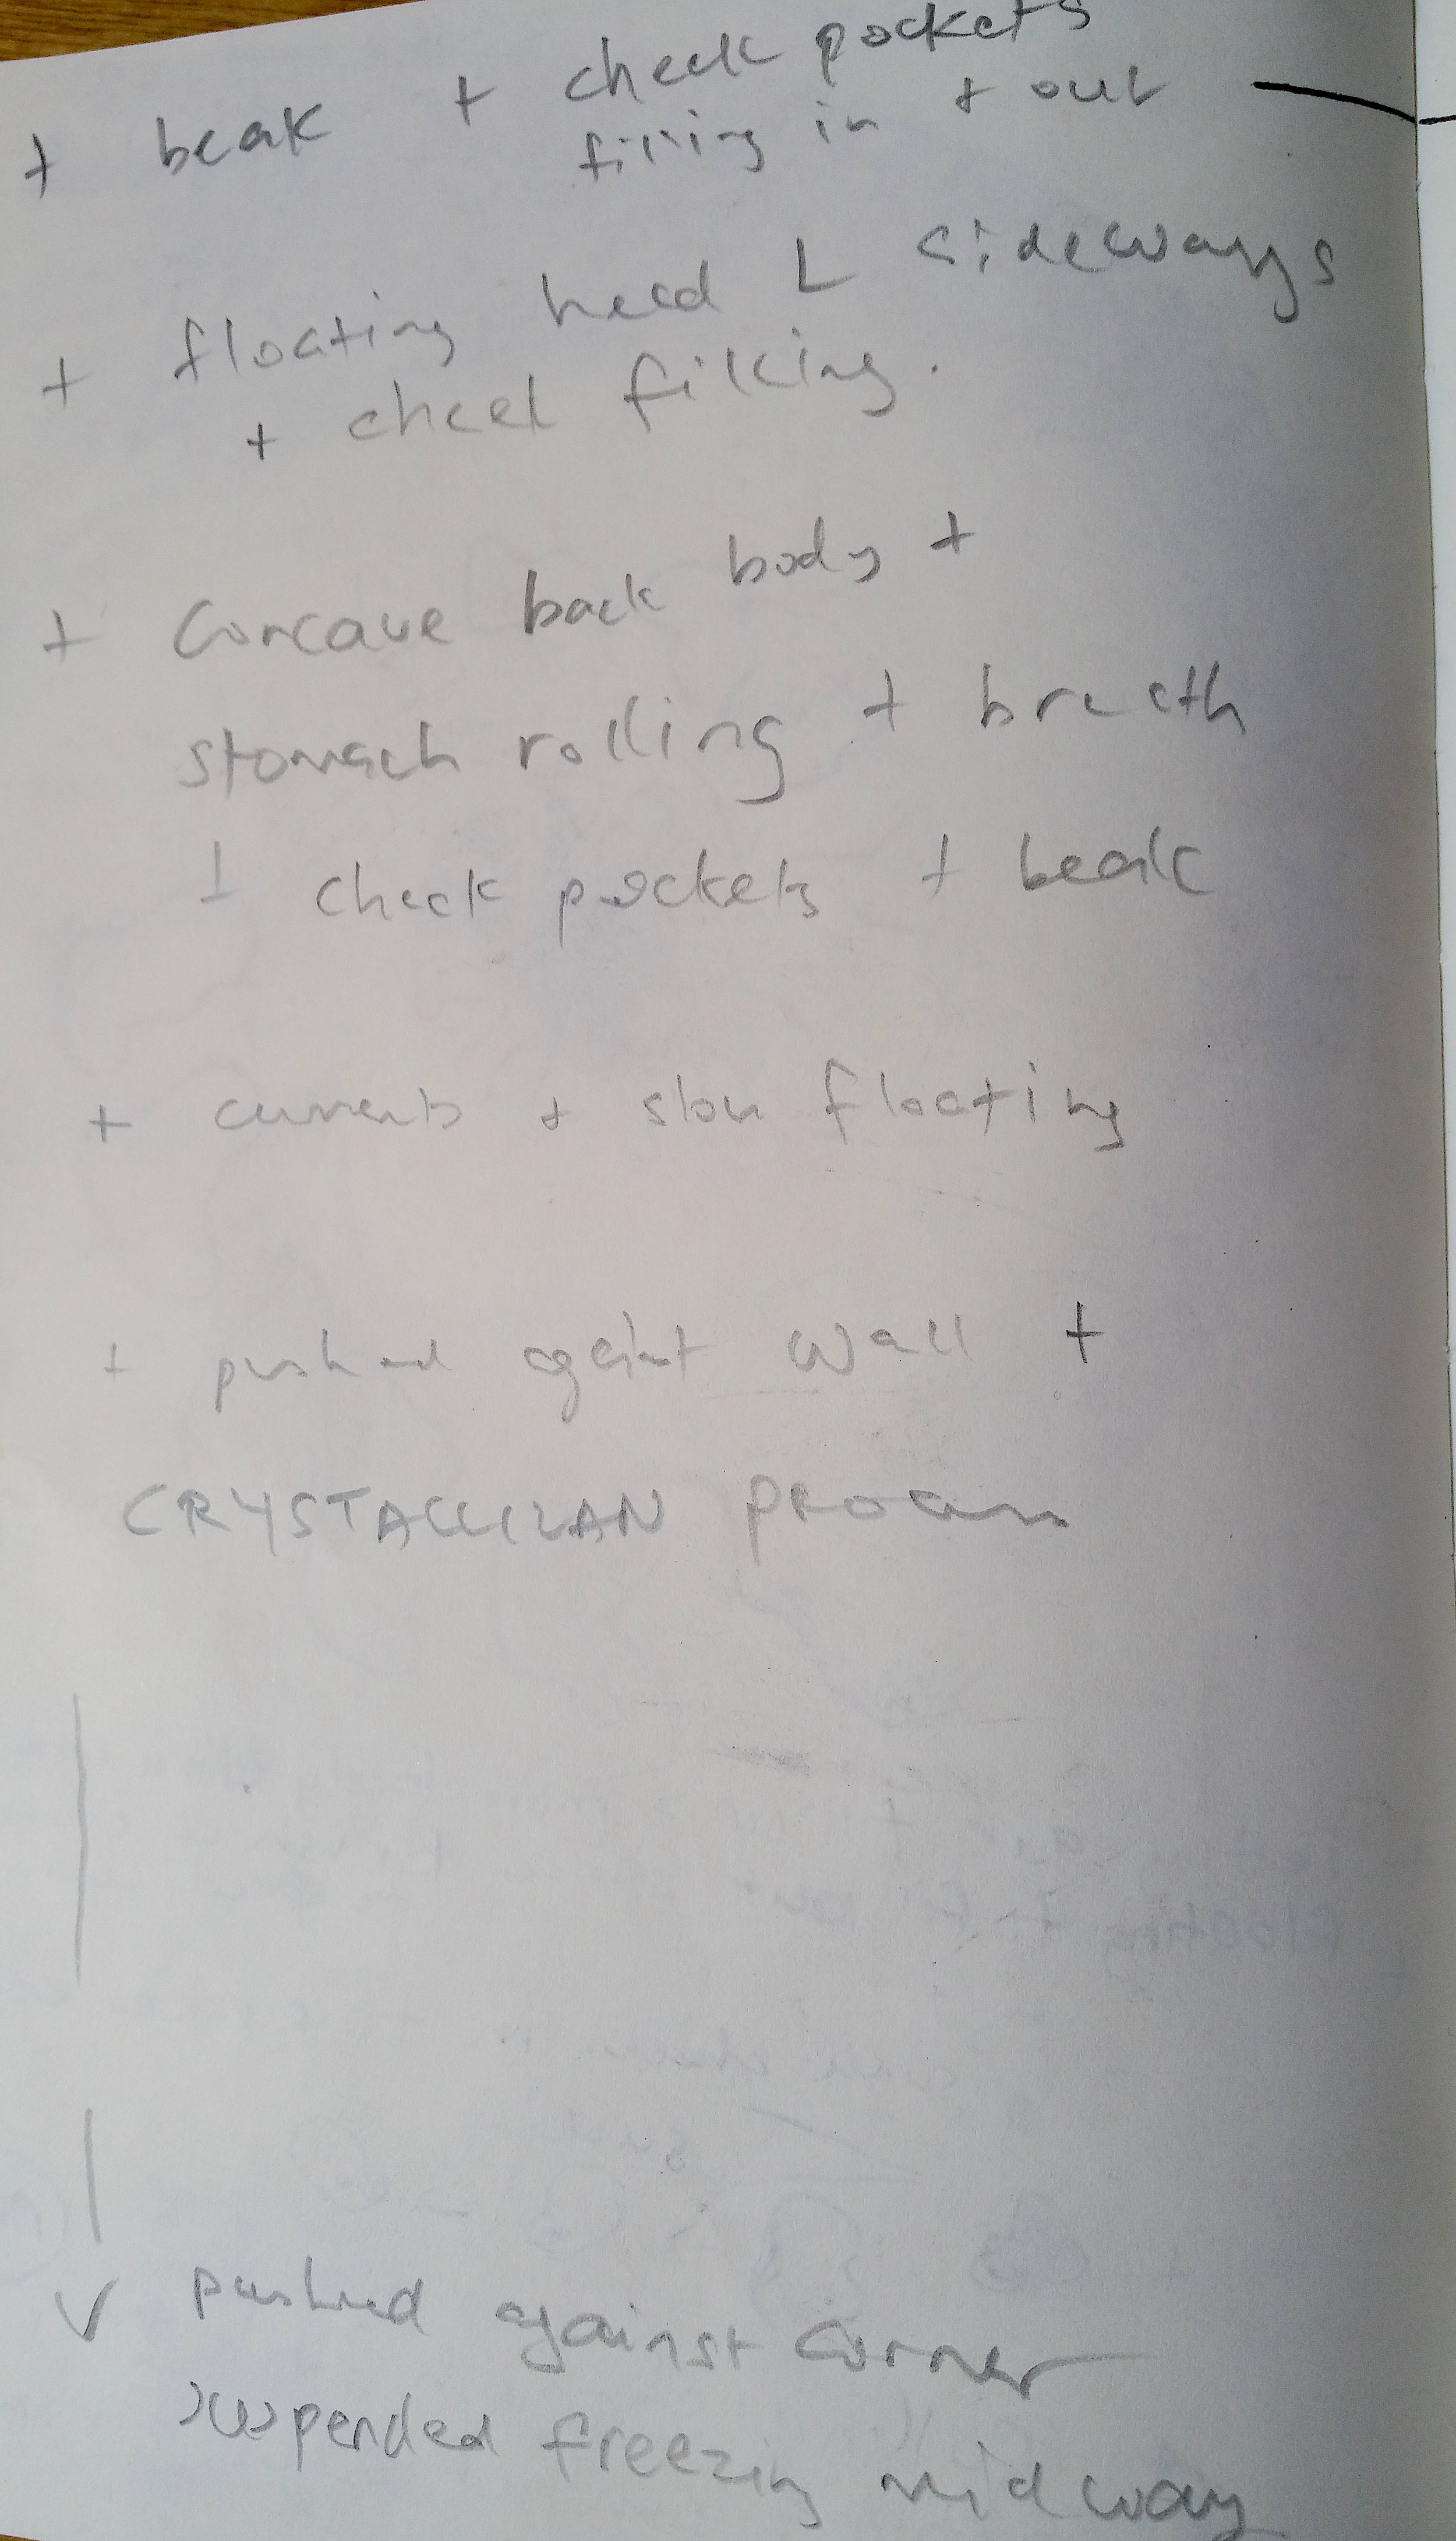 + beak + cheek pockets
filling in + out
+ floating head L sideways
+ cheek filling.
+ Concave back body +
stomach rolling + breath
+ cheek pockets + beak
+ currents + slow floating
+ pushed against wall +
CRYSTALLILAN PROCESS
pushed against corner
suspended freezing midway